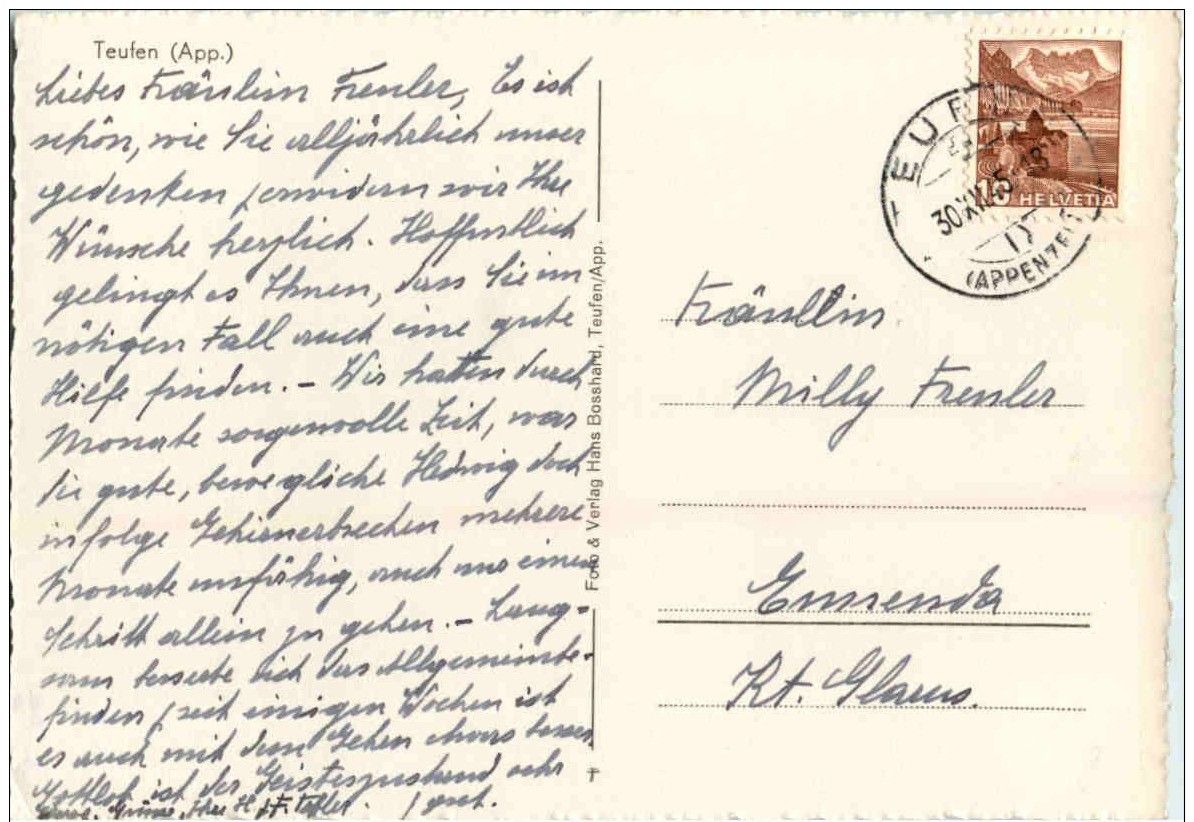 Teufen (App.)
Liebes Fräulein Frenler, Es ist
schön, wie Sie alljährlich unser
gedenken / erwidern wir Ihre
Wünsche herzlich. Hoffentlich
gelingt es Ihnen, dass Sie im
nötigen Fall auch eine gute
Hilfe finden. – Wir hatten durch
Monate sorgenvolle Zeit, war
die gute, bewegliche Hedwig doch
infolge Gehirnerbrechen mehrere
Monate unfähig, auch nur einen
Schritt allein zu gehen. – Lang-
sam besserte sich das Allgemeinbe-
finden / seit einigen Wochen ist
es auch mit dem Gehen etwas besser.
Gottlob ist der Geisteszustand sehr
/ gut.
Grüsse, Ihre H. & F.
Foto & Verlag Hans Bosshard, Teufen/App.
TEUFEN
30.XII.
(APPENZELL)
10 HELVETIA
Fräullin
Milly Frenler
Ennenda
Kt. Glarus.